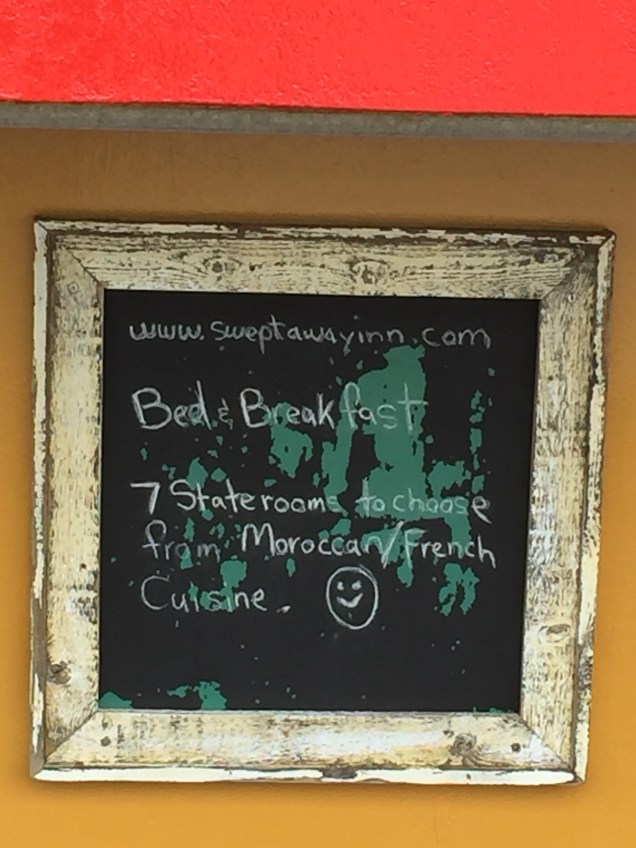 www.sweptawayinn.com
Bed & Breakfast
7 Staterooms to choose
from Moroccan/French
Cuisine.